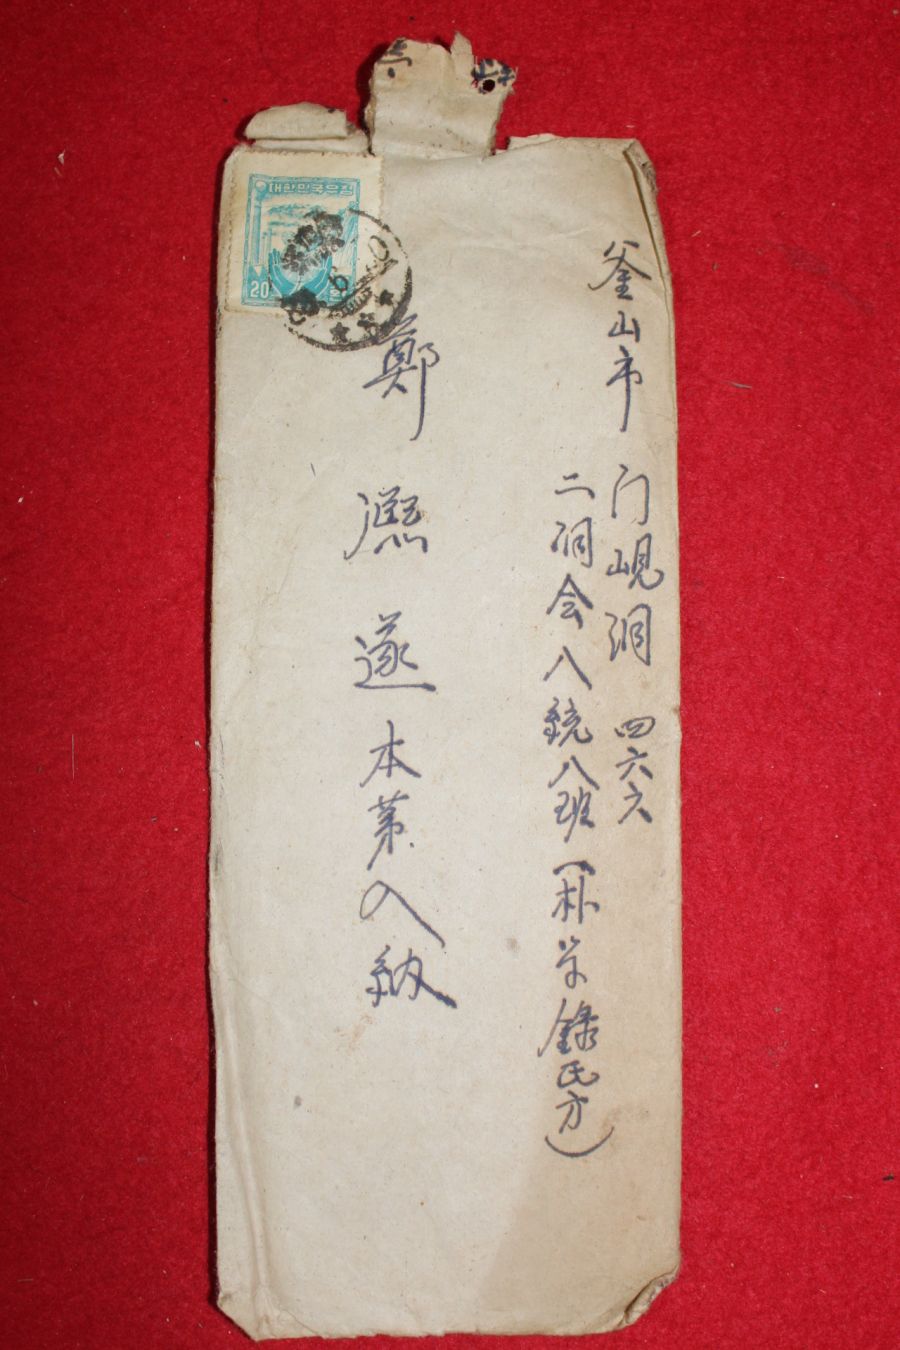 釜山市 门峴洞 四六六
二洞会八統八班(朴学錄氏方)
鄭 遂本第入納
대한민국우표
20 환